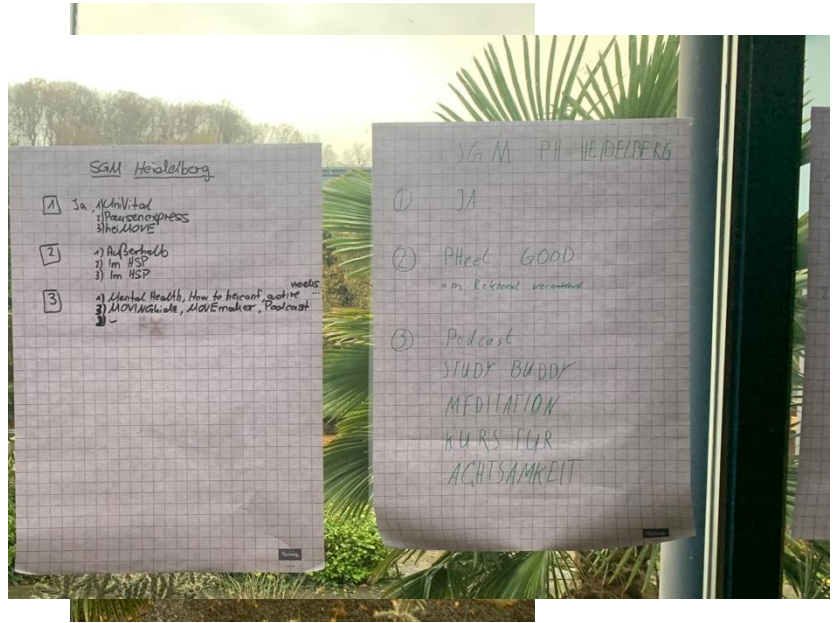 SGM Heidelberg
1 Ja, 1) UniVital
2) Pausenexpress
3) heiMOVE
2 1) Außerhalb
2) Im HSP
3) Im HSP
weeks
3 1) Mental Health, How to heiconf, active ...
3) MOVINGuide, MOVEmaker, Podcast
SGM PH HEIDELBERG
1 JA
2 PHeel GOOD
im Rektorat verankert
3 Podcast
STUDY BUDDY
MEDITATION
KURS FÜR
ACHTSAMKEIT